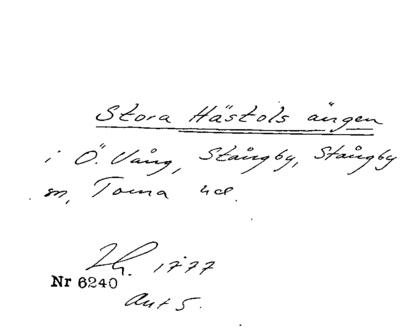 Stora Hästols ängen
i Ö. Vång, Stångby, Stångby
sn, Torna hd.
Zh. 1777
Nr 6240
Akt 5.